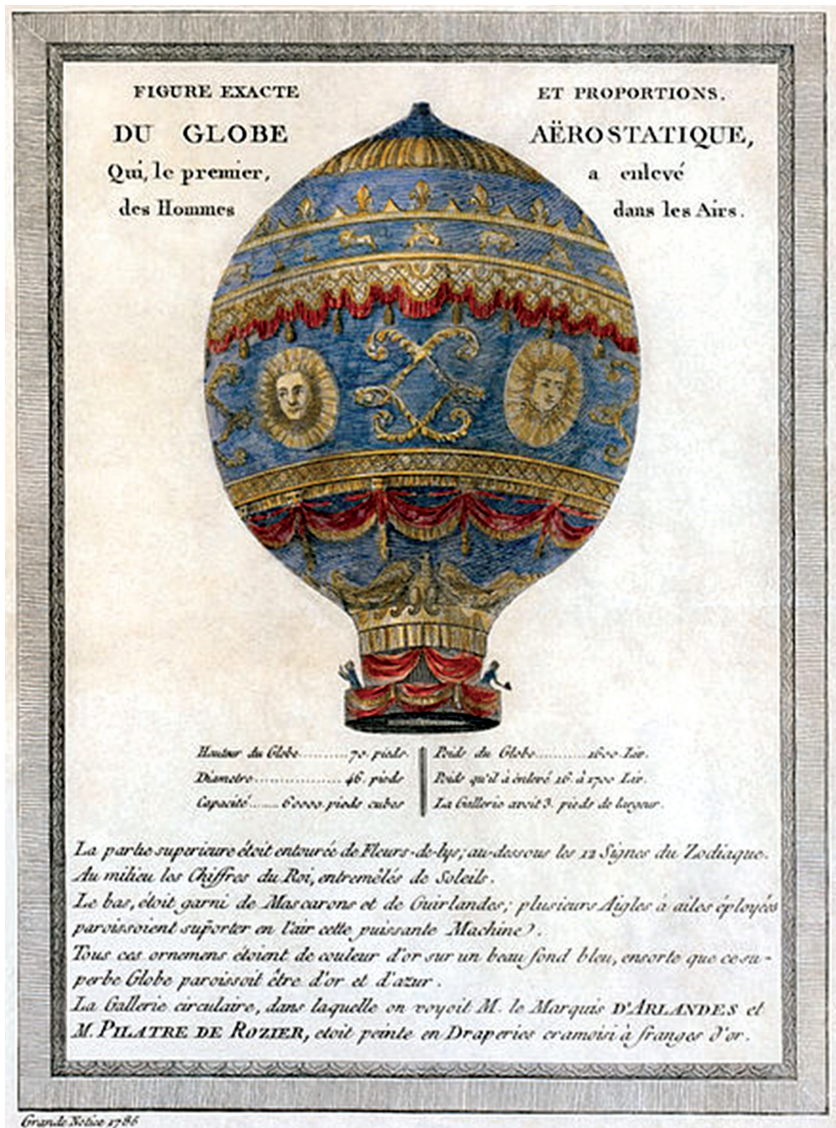 FIGURE EXACTE ET PROPORTIONS,
DU GLOBE AËROSTATIQUE,
Qui, le premier, a enlevé
des Hommes dans les Airs.
Hauteur du Globe..........70 pieds.
Diametre..................46. pieds
Capacité.......60000. pieds cubes
Poids du Globe...........1600. Liv.
Poids qu'il à enlevé 16. à 1700 Liv.
La Gallerie avoit 3. pieds de largeur.
La partie superieure étoit entourée de Fleurs-de-lys; au-dessous les 12 Signes du Zodiaque.
Au milieu les Chiffres du Roi, entremêlés de Soleils.
Le bas, étoit garni de Mascarons et de Guirlandes; plusieurs Aigles à ailes éployées
paroissoient suporter en l'air cette puissante Machine.
Tous ces ornemens étoient de couleur d'or sur un beau fond bleu, ensorte que ce su-
perbe Globe paroissoit être d'or et d'azur.
La Gallerie circulaire, dans laquelle on voyoit M. le Marquis D'ARLANDES et
M. PILATRE DE ROZIER, etoit peinte en Draperies cramoisi à franges d'or.
Grande Notice 1786